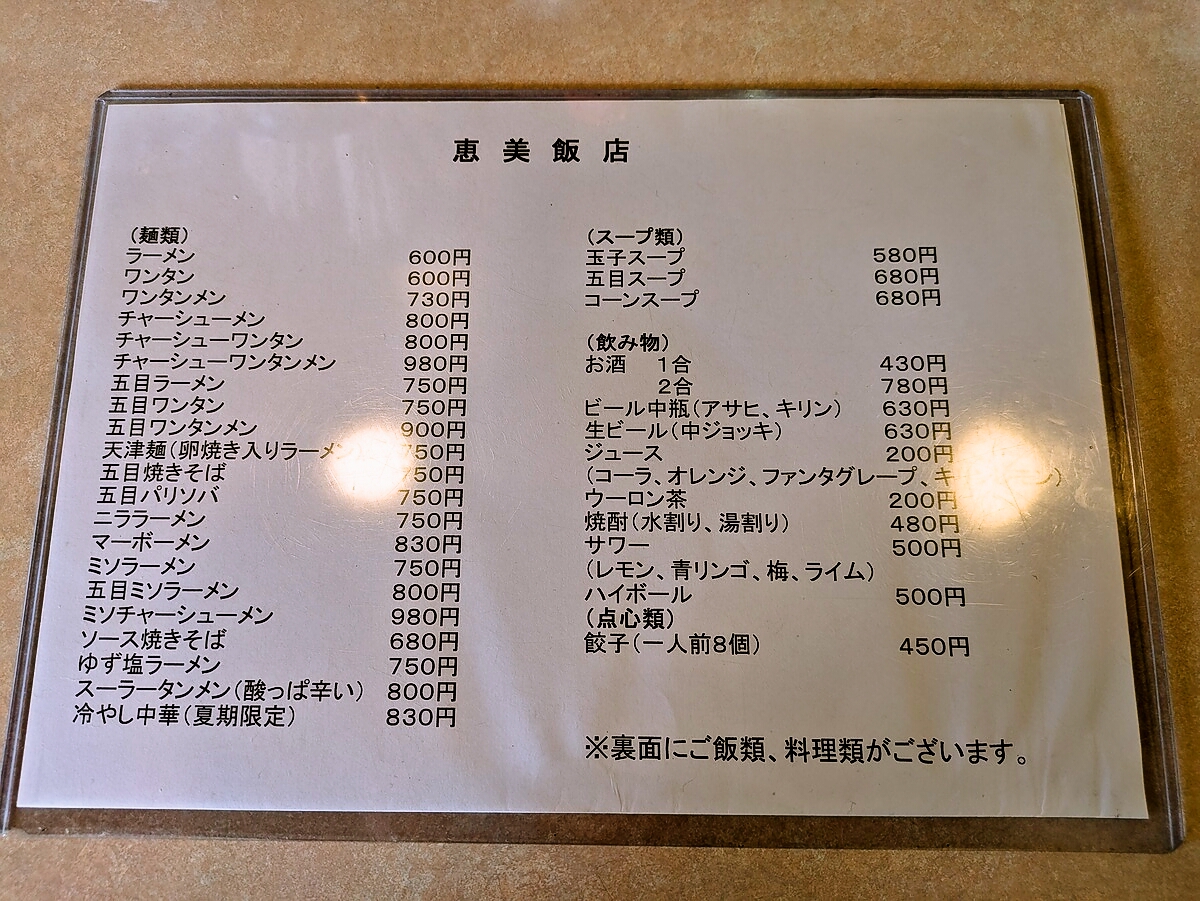 恵美飯店
(麺類)
ラーメン 600円
ワンタン 600円
ワンタンメン 730円
チャーシューメン 800円
チャーシューワンタン 800円
チャーシューワンタンメン 980円
五目ラーメン 750円
五目ワンタン 750円
五目ワンタンメン 900円
天津麺(卵焼き入りラーメン) 750円
五目焼きそば 750円
五目パリソバ 750円
ニララーメン 750円
マーボーメン 830円
ミソラーメン 750円
五目ミソラーメン 800円
ミソチャーシューメン 980円
ソース焼きそば 680円
ゆず塩ラーメン 750円
スーラータンメン(酸っぱ辛い) 800円
冷やし中華(夏期限定) 830円
(スープ類)
玉子スープ 580円
五目スープ 680円
コーンスープ 680円
(飲み物)
お酒 1合 430円
2合 780円
ビール中瓶(アサヒ、キリン) 630円
生ビール(中ジョッキ) 630円
ジュース 200円
(コーラ、オレンジ、ファンタグレープ、
ウーロン茶 200円
焼酎(水割り、湯割り) 480円
サワー 500円
(レモン、青リンゴ、梅、ライム)
ハイボール 500円
(点心類)
餃子(一人前8個) 450円
※裏面にご飯類、料理類がございます。